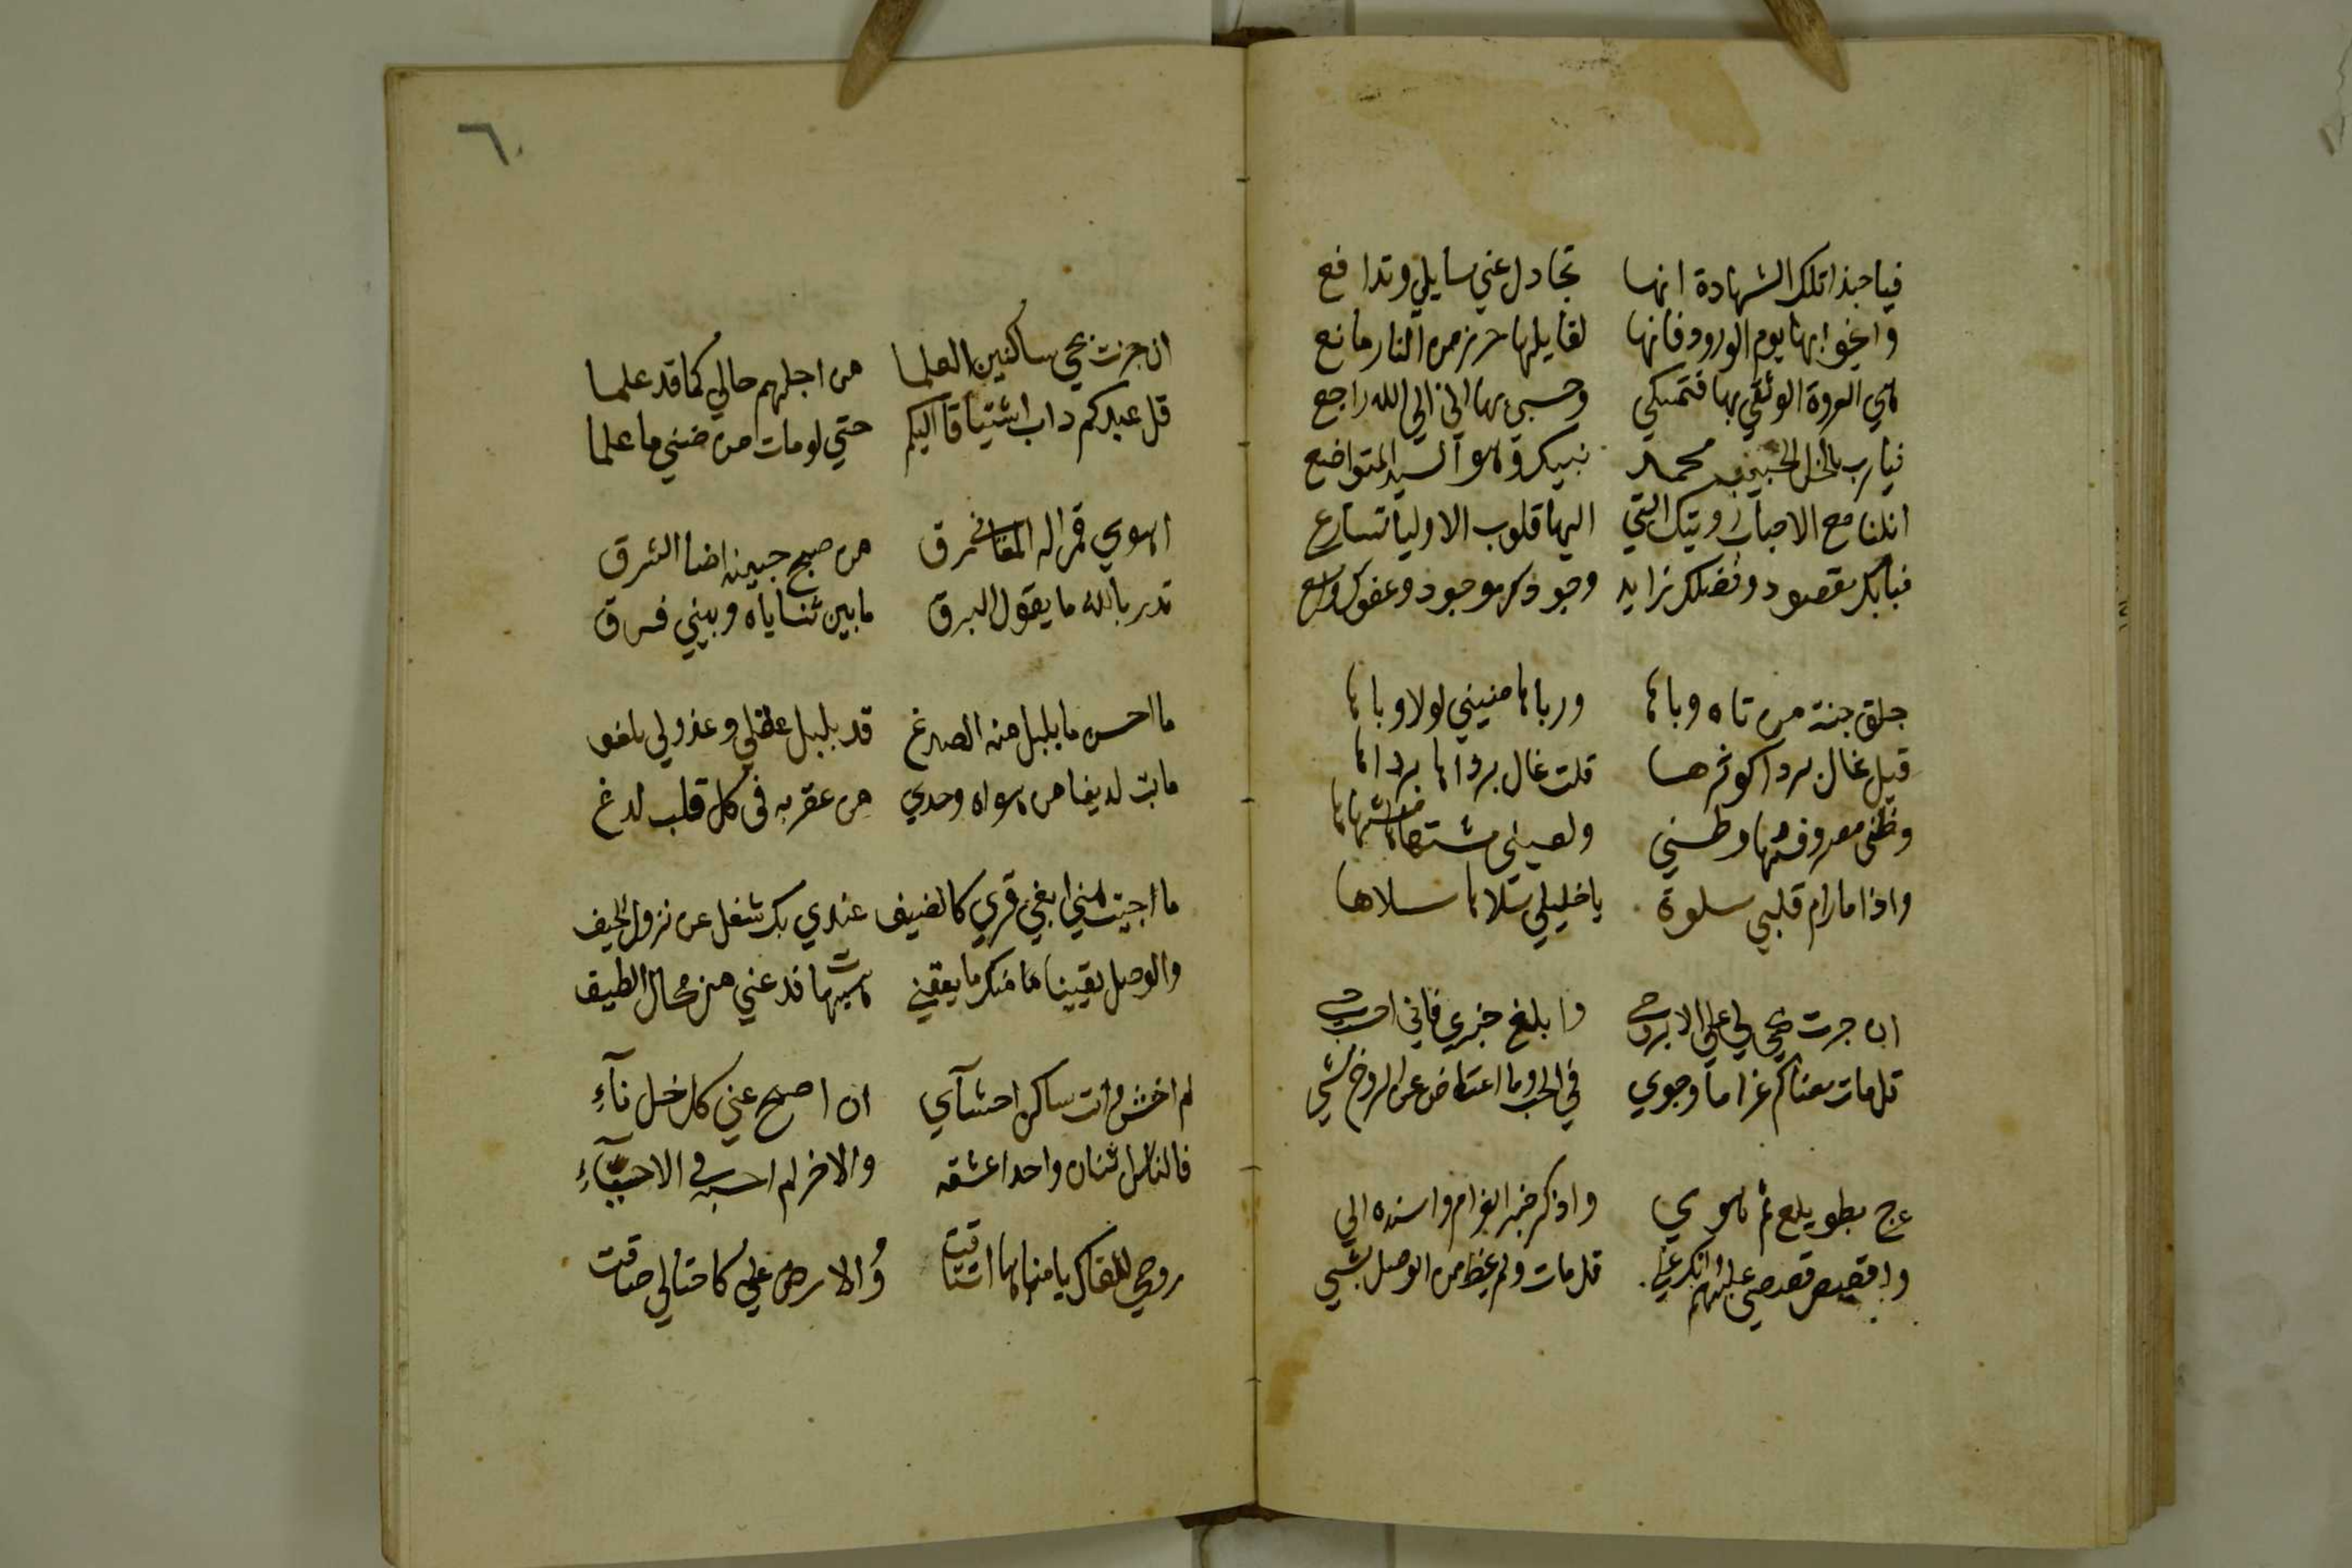 فيا حبذا تلك الشهادة انها تجادل عني سايلي وتدافع
وانجو بها يوم الورود فانها لقايلها حرز من النار مانع
هي العروة الوثقي بها فتمسكي وحسبي بها اني الي الله راجع
فيارب بالخل الحبيب محمد نبيك وهو السيد المتواضع
انلنا مع الاحباب رويتك التي اليها قلوب الاوليا تسارع
فبابك مقصود وفضلك زايد وجودك موجود وعفوك واسع
جلق جنة من تاه وباها ورباها منيتي لولا وباها
قيل غال بردا كوثرها قلت غال برداها برداها
وطني معروفتها وطني ولعيني مشتهاها مشتهاها
واذا ما رام قلبي سلوة يا خليلي سلاها سلاها
ان جزت بحي لي علي الابرق حي وابلغ خبري فاني احسب حي
قل مات معناكم غراما وجوي في الحب وما اعتاض عن الروح بشي
عج بطويلع ثم هوي واذكر خبر الغرام واسنده الي
واقصص قصصي عليهم وابك علي قل مات ولم يحظ من الوصل بشي
٦
ان جزت بحي ساكنين العلما من اجلهم حالي كما قد علما
قل عبدكم داب اشتياقا اليكم حتي لو مات من ضني ما علما
اهوي قمرا له المعاني رق من صبح جبينه اضا الشرق
تدر بالله ما يقول البرق ما بين ثناياه وبيني فرق
ما احسن ما بلبل منه الصدغ قد بلبل عقلي وعذولي يلغو
ما بت لديغا من هواه وحدي من عقربه في كل قلب لدغ
ما اجيت لمني ابغي قري كالضيف عندي بك شغل عن نزول الخيف
والوصل يقينا ما منك ما يقنعني هيهات فدعني من محال الطيف
لم اخش وانت ساكن احشآي ان اصبح عني كل خل نآء
فالناس اثنان واحد اعشقه والاخر لم احسبه في الاحيآء
روحي للقاك يا مناها اشتاقت والارض علي كاحتيالي ضاقت